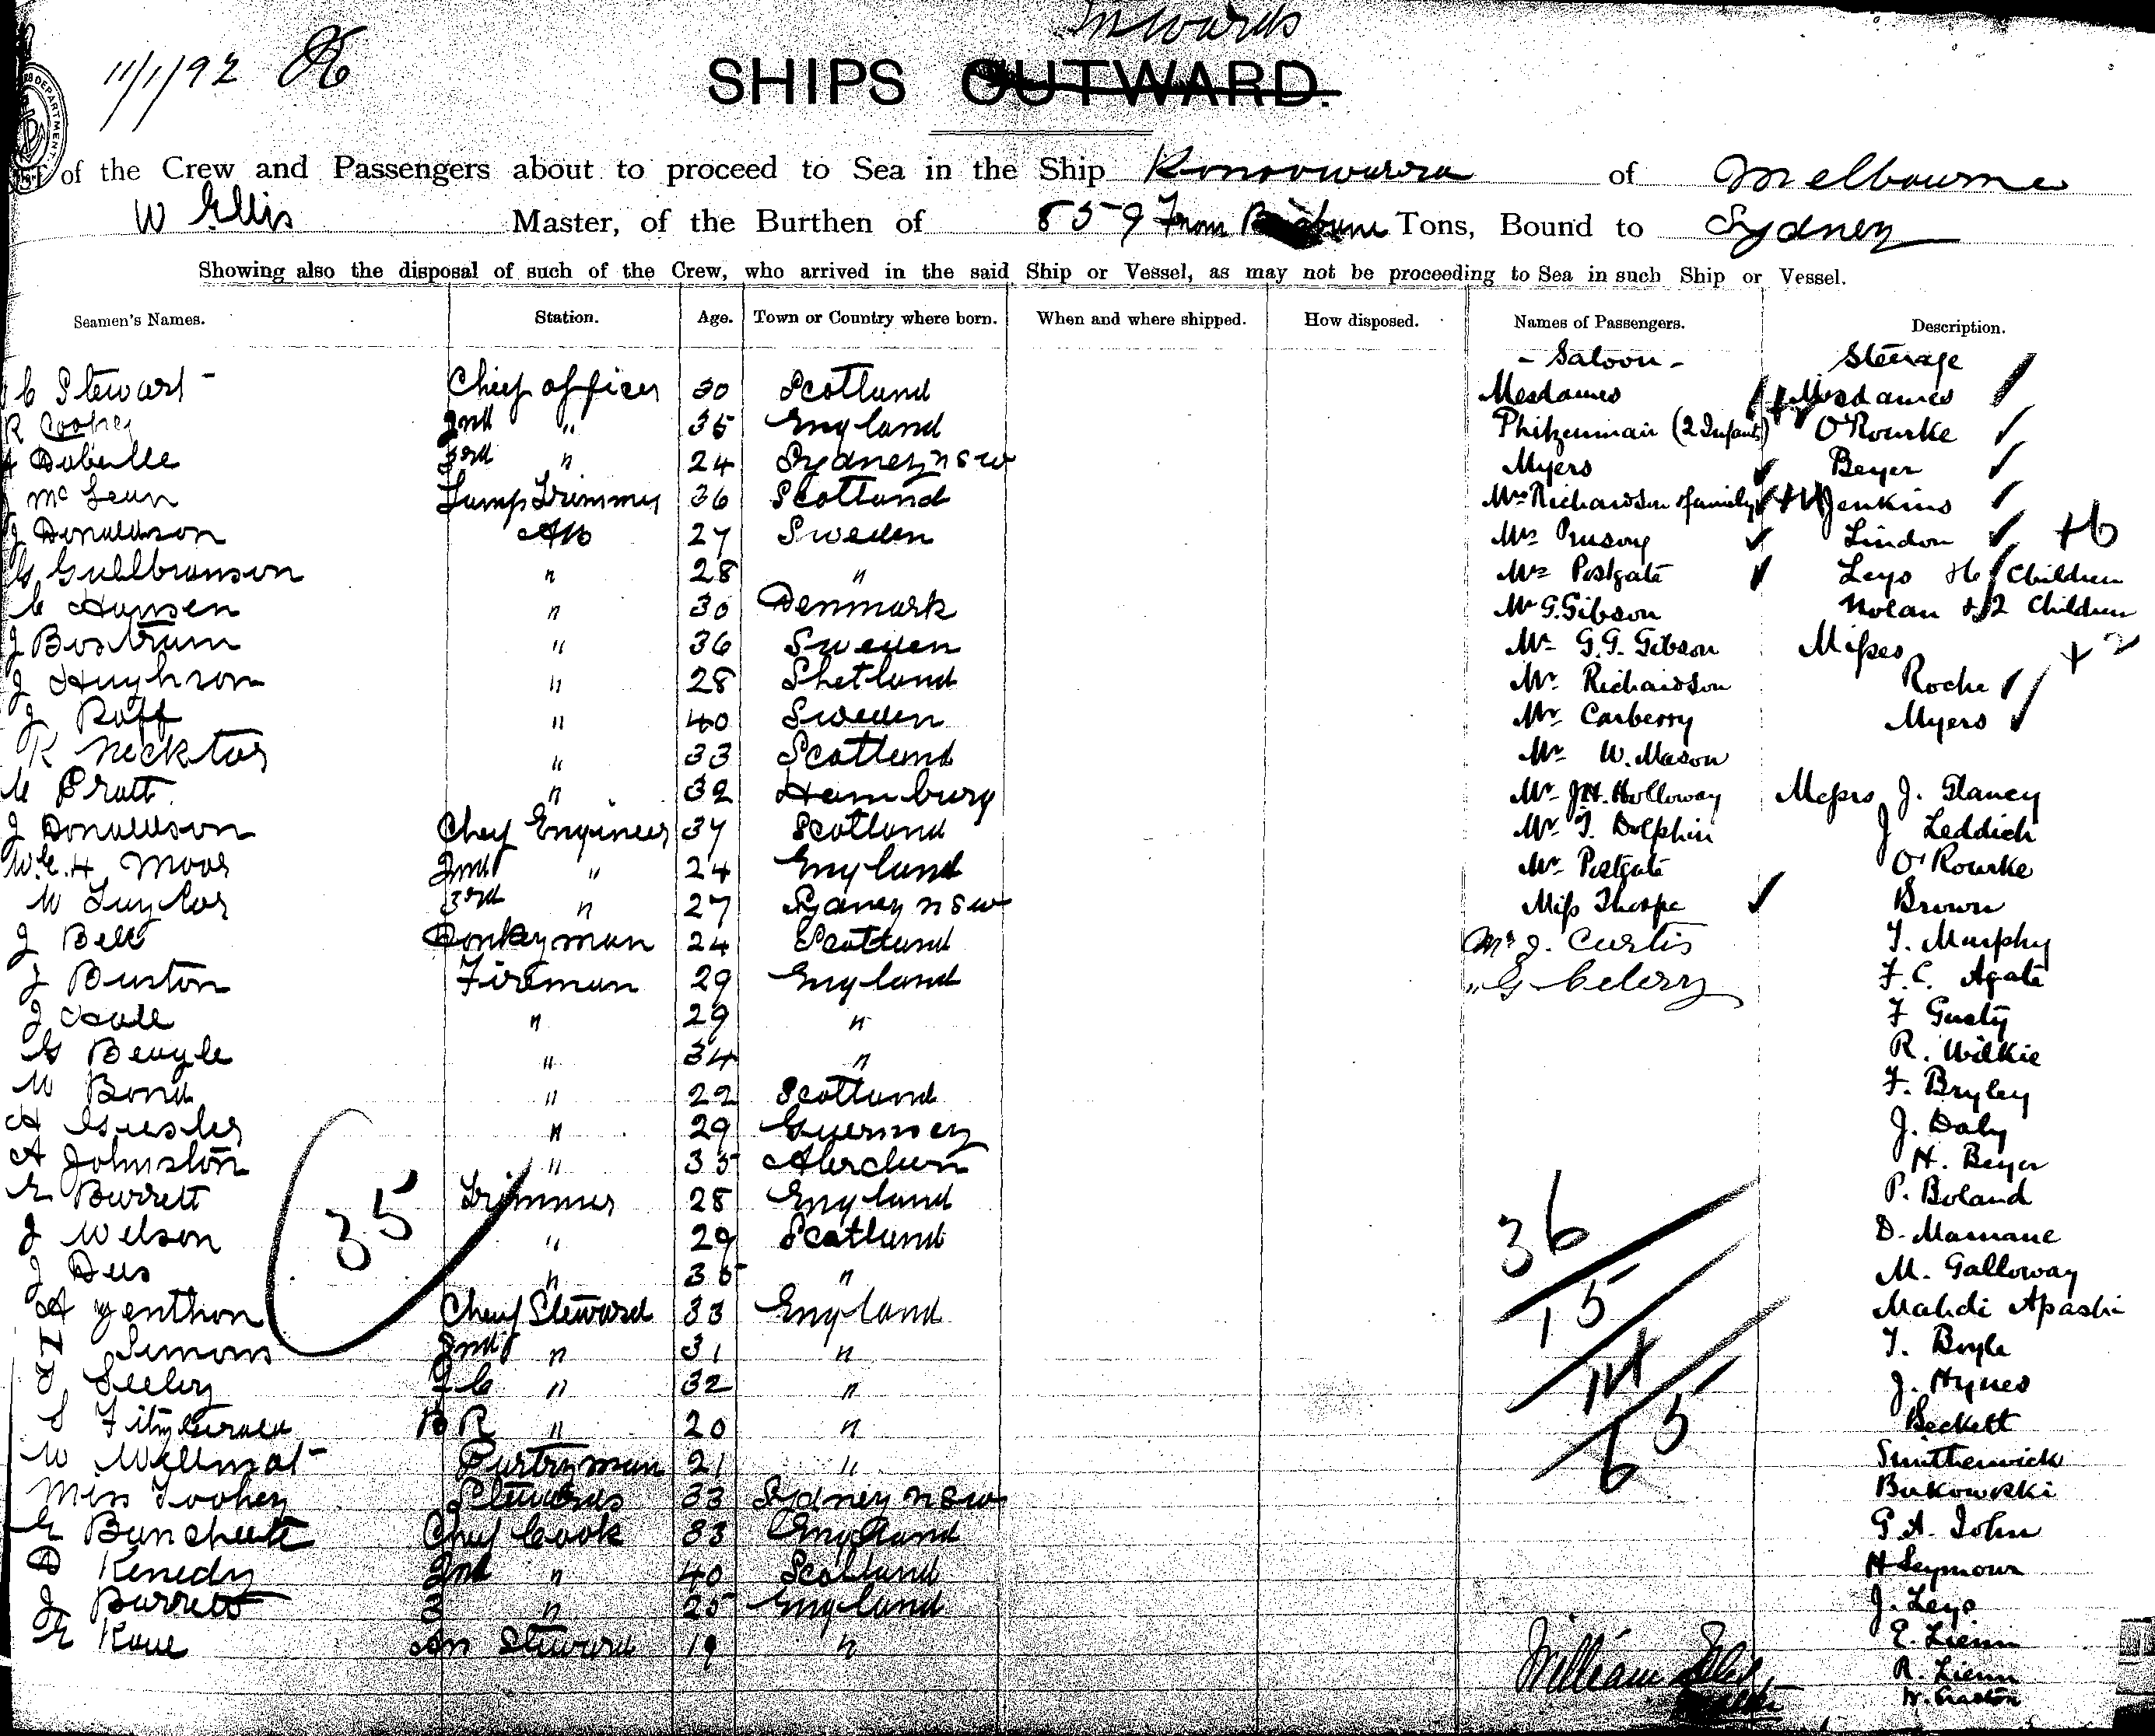 Inwards
11/1/92
SHIPS OUTWARD.
of the Crew and Passengers about to proceed to Sea in the Ship Konoowarra of Melbourne
W Ellis Master, of the Burthen of 859 From Brisbane Tons, Bound to Sydney
Showing also the disposal of such of the Crew, who arrived in the said Ship or Vessel, as may not be proceeding to Sea in such Ship or Vessel.
Seamen's Names. Station. Age. Town or Country where born. When and where shipped. How disposed. Names of Passengers. Description.
- Saloon - Steerage
C Stewart Chief officer 30 Scotland Mesdames Mesdames
R Cooper 2nd " 35 England (2 Infants) O'Rourke
3rd " 24 Sydney NSW Myers Beyer
Mc Lean Lamp Trimmer 36 Scotland Mrs Richardson & family Jenkins
J Donaldson AB 27 Sweden Mrs Lindon +6
G Gullbranson " 28 " Mrs Postgate Leys & 6 Children
C Hansen " 30 Denmark Mr G. Gibson Nolan & 2 Children
J Bostrum " 36 Sweden Mr G.G. Gibson Misses + 2
J Hughson " 28 Shetland Mr Richardson Roche
J Roff " 40 Sweden Mr Carberry Myers
R Necktor " 33 Scotland Mr W. Mason
C Pratt " 32 Hamburg Mr J.H. Holloway Messrs J. Glancy
J Donaldson Chief Engineer 37 Scotland Mr T. Dolphin J Leddich
W.C.H Moor 2nd " 24 England Mr Postgate O'Rourke
W Taylor 3rd " 27 Sydney NSW Miss Thorpe Brown
J Bell Donkeyman 24 Scotland Mr J. Curtis T. Murphy
J Burton Fireman 29 England " G F.C. Agate
J Hall " 29 " F Gusty
G Beagle " 34 " R. Wilkie
W Bond " 22 Scotland F. Bryley
H " 29 Guernsey J. Daly
A Johnston " 35 Aberdeen H. Beyer
E Barrett Trimmer 28 England P. Boland
J Welson " 29 Scotland 36 D. Mamane
J Dus " 35 " M. Galloway
35
A Yenthon Chief Steward 33 England 15 Mahdi Apashi
Simons 2nd " 31 " T. Boyle
J Seeley F C " 32 " 14 J. Hynes
S Fitzgerald B R " 20 " 5 Beckett
W Willmot Pantryman 21 " 6 Smitherwick
Miss Toohey Stewardess 33 Sydney NSW Bukowski
E Buncheete Chief Cook 33 England G.A. John
D Kenedy 2nd " 40 Scotland H Seymour
J Burrett 3 " 25 England J. Leys
E Kaue Steward 19 " E. Lienn
William Ellis R. Lienn
Master